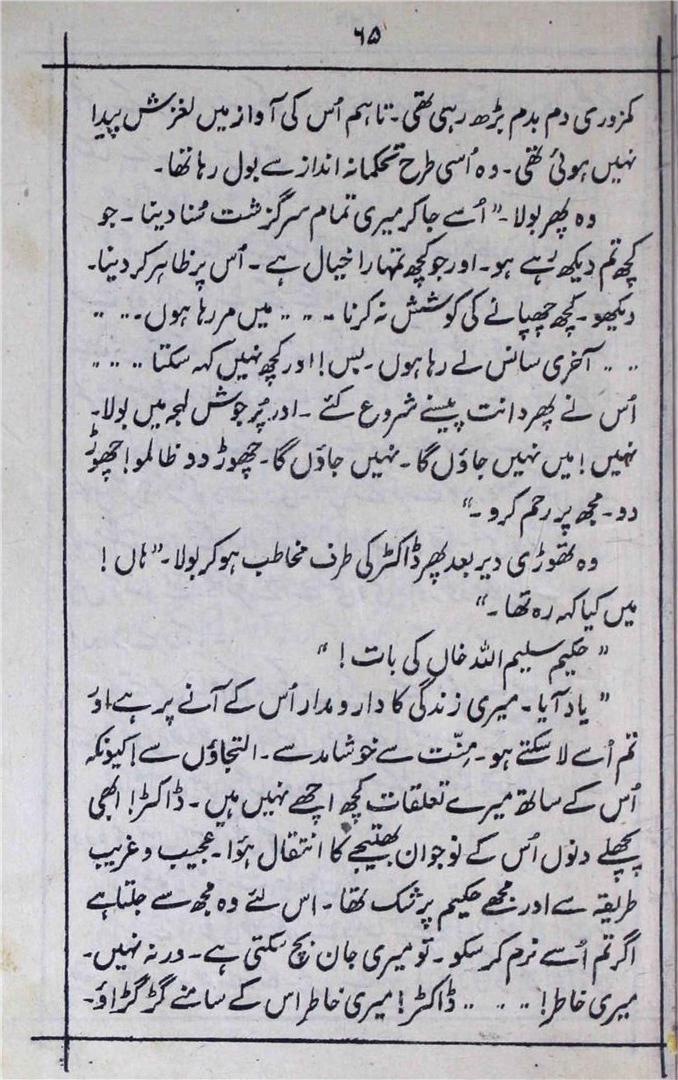 ۶۵
کمزوری دم بدم بڑھ رہی تھی۔ تاہم اُس کی آواز میں لغزش پیدا
نہیں ہوئی تھی۔ وہ اُسی طرح تحکمانہ انداز سے بول رہا تھا۔
وہ پھر بولا۔ "اُسے جا کر میری تمام سرگزشت سُنا دینا۔ جو
کچھ تم دیکھ رہے ہو۔ اور جو کچھ تمہارا خیال ہے۔ اُس پر ظاہر کر دینا۔
دیکھو۔ کچھ چھپانے کی کوشش نہ کرنا ۔۔ ۔۔ میں مر رہا ہوں۔ ۔۔ ۔۔
۔۔ ۔۔ آخری سانس لے رہا ہوں۔ بس! اور کچھ نہیں کہہ سکتا ۔۔ ۔۔
اُس نے پھر دانت پیسنے شروع کئے۔ اور پُرجوش لہجہ میں بولا۔
نہیں! میں نہیں جاؤں گا۔ نہیں جاؤں گا۔ چھوڑ دو ظالمو! چھوڑ
دو۔ مجھ پر رحم کرو۔"
وہ تھوڑی دیر بعد پھر ڈاکٹر کی طرف مخاطب ہو کر بولا۔ "ہاں!
میں کیا کہہ رہ تھا۔"
"حکیم سلیم اللہ خاں کی بات!"
"یاد آیا۔ میری زندگی کا دار و مدار اُس کے آنے پر ہے اور
تم اُسے لا سکتے ہو۔ مِنّت سے خوشامد سے۔ التجاؤں سے! کیونکہ
اُس کے ساتھ میرے تعلقات کچھ اچھے نہیں ہیں۔ ڈاکٹر! ابھی
پچھلے دنوں اُس کے نوجوان بھتیجے کا انتقال ہؤا۔ عجیب و غریب
طریقہ سے اور مجھے حکیم پر شک تھا۔ اس لئے وہ مجھ سے جلتا ہے
اگر تم اُسے نرم کر سکو۔ تو میری جان بچ سکتی ہے۔ ورنہ نہیں۔
میری خاطر! ۔۔ ۔۔ ۔۔ ڈاکٹر! میری خاطر اس کے سامنے گڑگڑاؤ۔